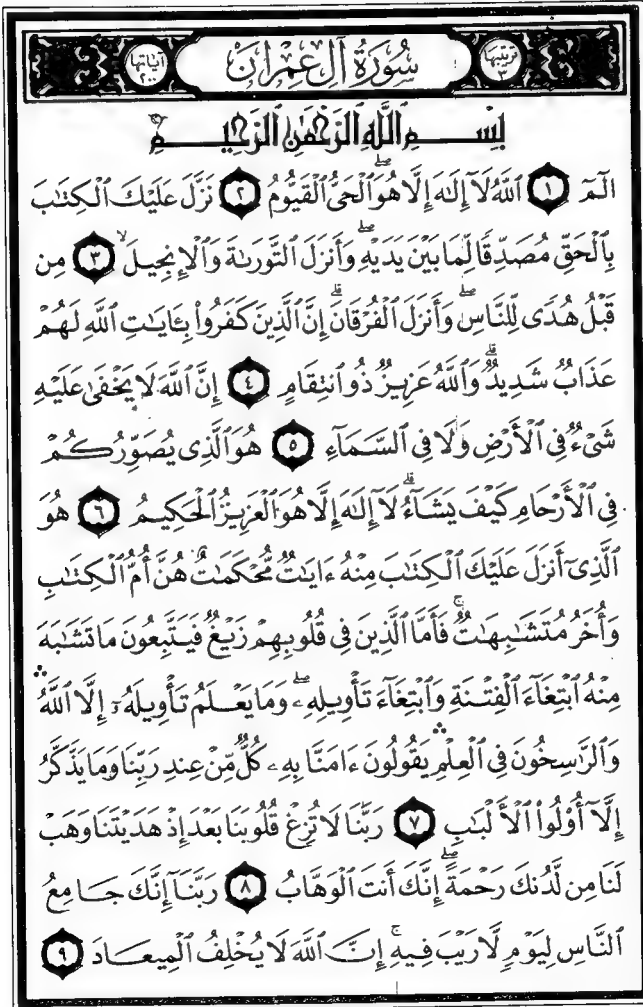 ترتيبها ٣ سُورَةُ آلِ عِمْرَانَ آياتها ٢٠٠
بِسْمِ اللَّهِ الرَّحْمَٰنِ الرَّحِيمِ
الٓمٓ ١ ٱللَّهُ لَآ إِلَٰهَ إِلَّا هُوَ ٱلْحَىُّ ٱلْقَيُّومُ ٢ نَزَّلَ عَلَيْكَ ٱلْكِتَٰبَ
بِٱلْحَقِّ مُصَدِّقًا لِّمَا بَيْنَ يَدَيْهِ ۖ وَأَنزَلَ ٱلتَّوْرَىٰةَ وَٱلْإِنجِيلَ ۙ ٣ مِن
قَبْلُ هُدًى لِّلنَّاسِ ۖ وَأَنزَلَ ٱلْفُرْقَانَ ۗ إِنَّ ٱلَّذِينَ كَفَرُوا۟ بِـَٔايَٰتِ ٱللَّهِ لَهُمْ
عَذَابٌ شَدِيدٌ ۗ وَٱللَّهُ عَزِيزٌ ذُو ٱنتِقَامٍ ٤ إِنَّ ٱللَّهَ لَا يَخْفَىٰ عَلَيْهِ
شَىْءٌ فِى ٱلْأَرْضِ وَلَا فِى ٱلسَّمَآءِ ٥ هُوَ ٱلَّذِى يُصَوِّرُكُمْ
فِى ٱلْأَرْحَامِ كَيْفَ يَشَآءُ ۗ لَآ إِلَٰهَ إِلَّا هُوَ ٱلْعَزِيزُ ٱلْحَكِيمُ ٦ هُوَ
ٱلَّذِىٓ أَنزَلَ عَلَيْكَ ٱلْكِتَٰبَ مِنْهُ ءَايَٰتٌ مُّحْكَمَٰتٌ هُنَّ أُمُّ ٱلْكِتَٰبِ
وَأُخَرُ مُتَشَٰبِهَٰتٌ ۖ فَأَمَّا ٱلَّذِينَ فِى قُلُوبِهِمْ زَيْغٌ فَيَتَّبِعُونَ مَا تَشَٰبَهَ
مِنْهُ ٱبْتِغَآءَ ٱلْفِتْنَةِ وَٱبْتِغَآءَ تَأْوِيلِهِۦ ۖ وَمَا يَعْلَمُ تَأْوِيلَهُۥٓ إِلَّا ٱللَّهُ ۛ
وَٱلرَّٰسِخُونَ فِى ٱلْعِلْمِ ۛ يَقُولُونَ ءَامَنَّا بِهِۦ كُلٌّ مِّنْ عِندِ رَبِّنَا وَمَا يَذَّكَّرُ
إِلَّآ أُو۟لُوا۟ ٱلْأَلْبَٰبِ ٧ رَبَّنَا لَا تُزِغْ قُلُوبَنَا بَعْدَ إِذْ هَدَيْتَنَا وَهَبْ
لَنَا مِن لَّدُنكَ رَحْمَةً ۖ إِنَّكَ أَنتَ ٱلْوَهَّابُ ٨ رَبَّنَآ إِنَّكَ جَامِعُ
ٱلنَّاسِ لِيَوْمٍ لَّا رَيْبَ فِيهِ ۚ إِنَّ ٱللَّهَ لَا يُخْلِفُ ٱلْمِيعَادَ ٩